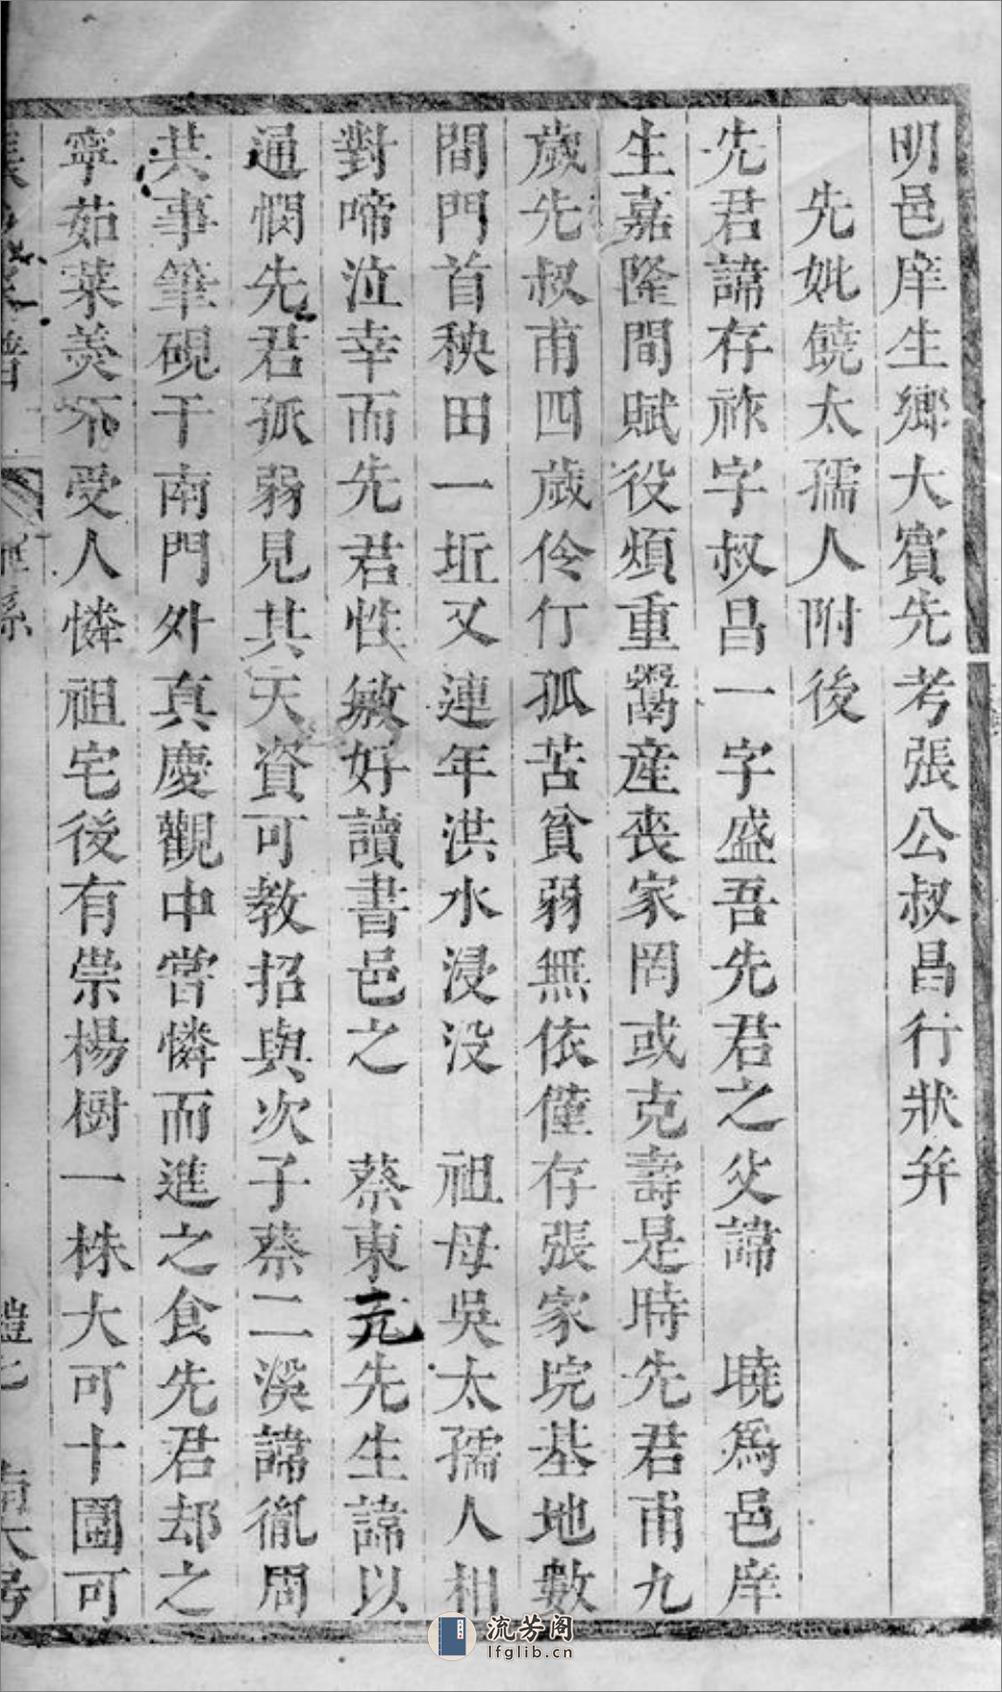 明邑庠生鄉大賓先考張公叔昌行狀并
先妣饒太孺人附後
先君諱存祚字叔昌一字盛吾先君之父諱 曉為邑庠
生嘉隆間賦役煩重鬻產喪家罔或克壽是時先君甫九
歲先叔甫四歲伶仃孤苦貧弱無依僅存張家垸基地數
間門首秧田一坵又連年洪水浸没 祖母吳太孺人相
對啼泣幸而先君性敏好讀書邑之 蔡東元先生諱以
通憫先君孤弱見其天資可教招與次子蔡二溪諱胤周
共事筆硯于南門外真慶觀中嘗憐而進之食先君却之
寧茹菜羹不受人憐祖宅後有崇楊樹一株大可十圍可
流芳阁
lfglib.cn